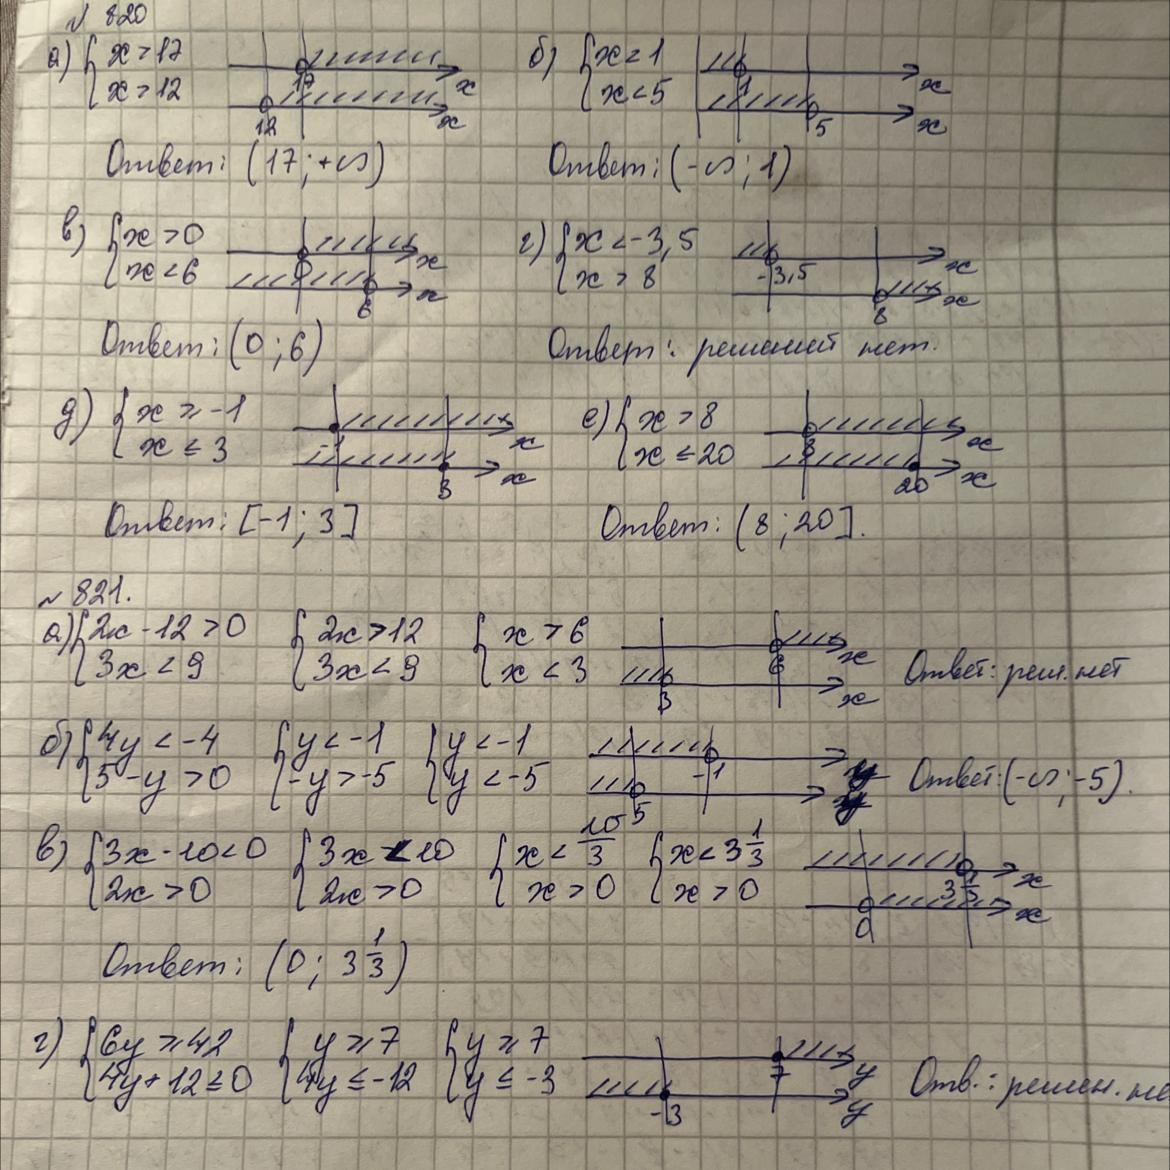 № 820
а) { x > 17 x > 12 17 x 12 x
Ответ: (17; +∞)
б) { x < 1 x < 5 1 x 5 x
Ответ: (-∞; 1)
в) { x > 0 x < 6 0 x 6 x
Ответ: (0; 6)
г) { x < -3,5 x > 8 -3,5 x 8 x
Ответ: решений нет.
д) { x ≥ -1 x ≤ 3 -1 x 3 x
Ответ: [-1; 3]
е) { x > 8 x ≤ 20 8 x 20 x
Ответ: (8; 20].
№ 821.
а) { 2x - 12 > 0 3x < 9 { 2x > 12 3x < 9 { x > 6 x < 3 6 x 3 x Ответ: реш. нет
б) { 4y < -4 5 - y > 0 { y < -1 -y > -5 { y < -1 y < -5 -1 y -5 y Ответ: (-∞; -5).
в) { 3x - 10 < 0 2x > 0 { 3x < 10 2x > 0 { x < 10/3 x > 0 { x < 3 1/3 x > 0 3 1/3 x 0 x
Ответ: (0; 3 1/3)
г) { 6y ≥ 42 4y + 12 ≤ 0 { y ≥ 7 4y ≤ -12 { y ≥ 7 y ≤ -3 7 y -3 y Отв.: решен. не